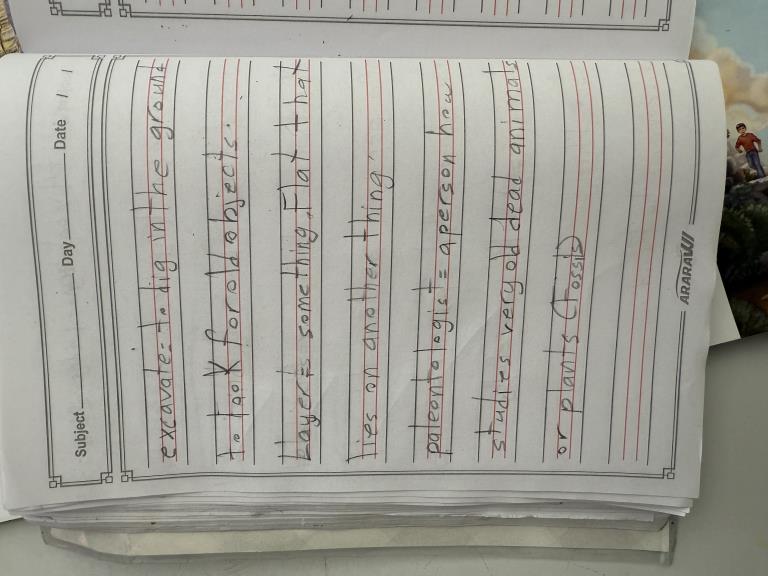 Subject Day Date / /
excavate = to dig in the ground
to look for old objects.
Layer = something flat that
lies on another thing.
paleontologist = a person how
studies very old dead animals
or plants (fossils)
ARARAWI